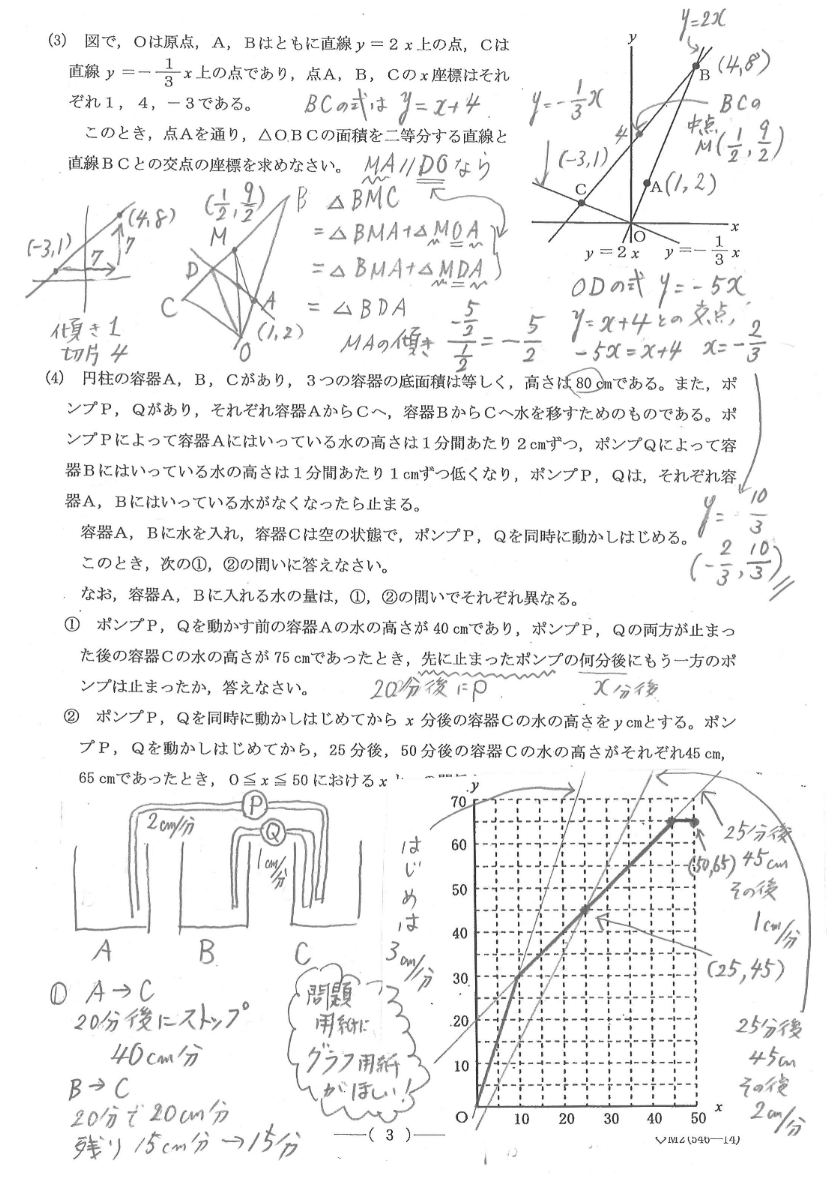 (3) 図で，Oは原点，A，Bはともに直線y＝2x上の点，Cは
直線 y＝－1/3 x上の点であり，点A，B，Cのx座標はそれ
ぞれ1，4，－3である。
BCの式は y=x+4
このとき，点Aを通り，△OBCの面積を二等分する直線と
直線BCとの交点の座標を求めなさい。
MA//DOなら
y=2x
y
B (4,8)
y=-1/3x
BCの
中点
M(1/2, 9/2)
4
(-3,1)
C
A(1,2)
O
x
y＝2x
y＝－1/3 x
(4,8)
(-3,1)
7
7
傾き1
切片4
(1/2, 9/2)
B
M
D
C
A
(1,2)
O
△BMC
=△BMA+△MOA
=△BMA+△MDA
=△BDA
MAの傾き -5/2 / 1/2 = -5/2
ODの式 y=-5x
y=x+4との交点,
-5x=x+4 x=-2/3
y=10/3
(-2/3, 10/3)
(4) 円柱の容器A，B，Cがあり，3つの容器の底面積は等しく，高さは80cmである。また，ポ
ンプP，Qがあり，それぞれ容器AからCへ，容器BからCへ水を移すためのものである。ポ
ンプPによって容器Aにはいっている水の高さは1分間あたり2cmずつ，ポンプQによって容
器Bにはいっている水の高さは1分間あたり1cmずつ低くなり，ポンプP，Qは，それぞれ容
器A，Bにはいっている水がなくなったら止まる。
容器A，Bに水を入れ，容器Cは空の状態で，ポンプP，Qを同時に動かしはじめる。
このとき，次の①，②の問いに答えなさい。
なお，容器A，Bに入れる水の量は，①，②の問いでそれぞれ異なる。
① ポンプP，Qを動かす前の容器Aの水の高さが40cmであり，ポンプP，Qの両方が止まっ
た後の容器Cの水の高さが75cmであったとき，先に止まったポンプの何分後にもう一方のポ
ンプは止まったか，答えなさい。
20分後にP
x分後
② ポンプP，Qを同時に動かしはじめてから x 分後の容器Cの水の高さをycmとする。ポン
プP，Qを動かしはじめてから，25分後，50分後の容器Cの水の高さがそれぞれ45cm，
65cmであったとき，0≦x≦50における
P
2cm/分
Q
1cm/分
A
B
C
① A→C
20分後にストップ
40cm分
B→C
20分で20cm分
残り15cm分→15分
問題
用紙に
グラフ用紙
がほしい!
はじめは
3cm/分
y
70
60
50
40
30
20
10
O
10 20 30 40 50 x
25分後
45cm
その後
1cm/分
(50,65)
(25,45)
25分後
45cm
その後
2cm/分
―( 3 )―
◇M2(546―14)